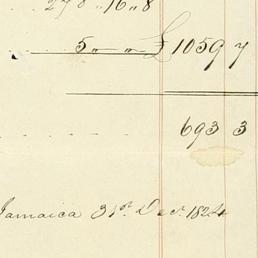 278 „ 16 „ 8
5 „ - „ - £ 1059 7
693 3
Jamaica 31st Decr. 1824